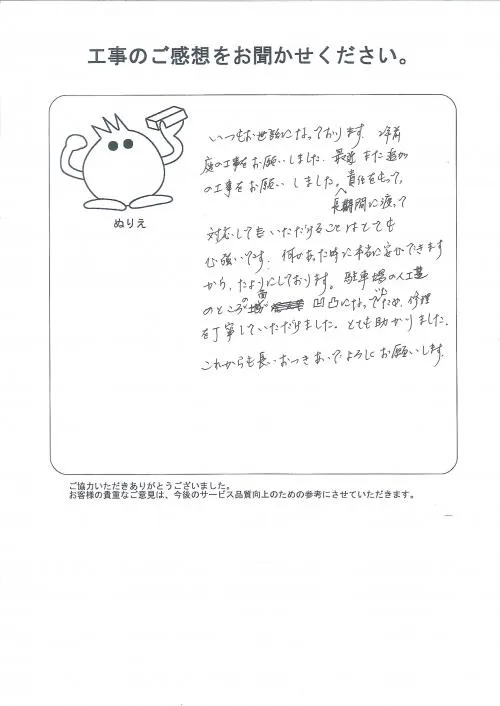 工事のご感想をお聞かせください。
いつもお世話になっております。2年前
庭の工事をお願いしました。最近また追加
の工事をお願いしました。責任をもって、
長期間に渡って
対応していただけることはとても
心強いです。何かあった時に本当に安心できます
から、たよりにしております。駐車場の人工芝
のところの面が凹凸になってしまったため、修理
を丁寧していただけました。とても助かりました。
これからも長いおつきあいでよろしくお願いします。
ぬりえ
ご協力いただきありがとうございました。
お客様の貴重なご意見は、今後のサービス品質向上のための参考にさせていただきます。